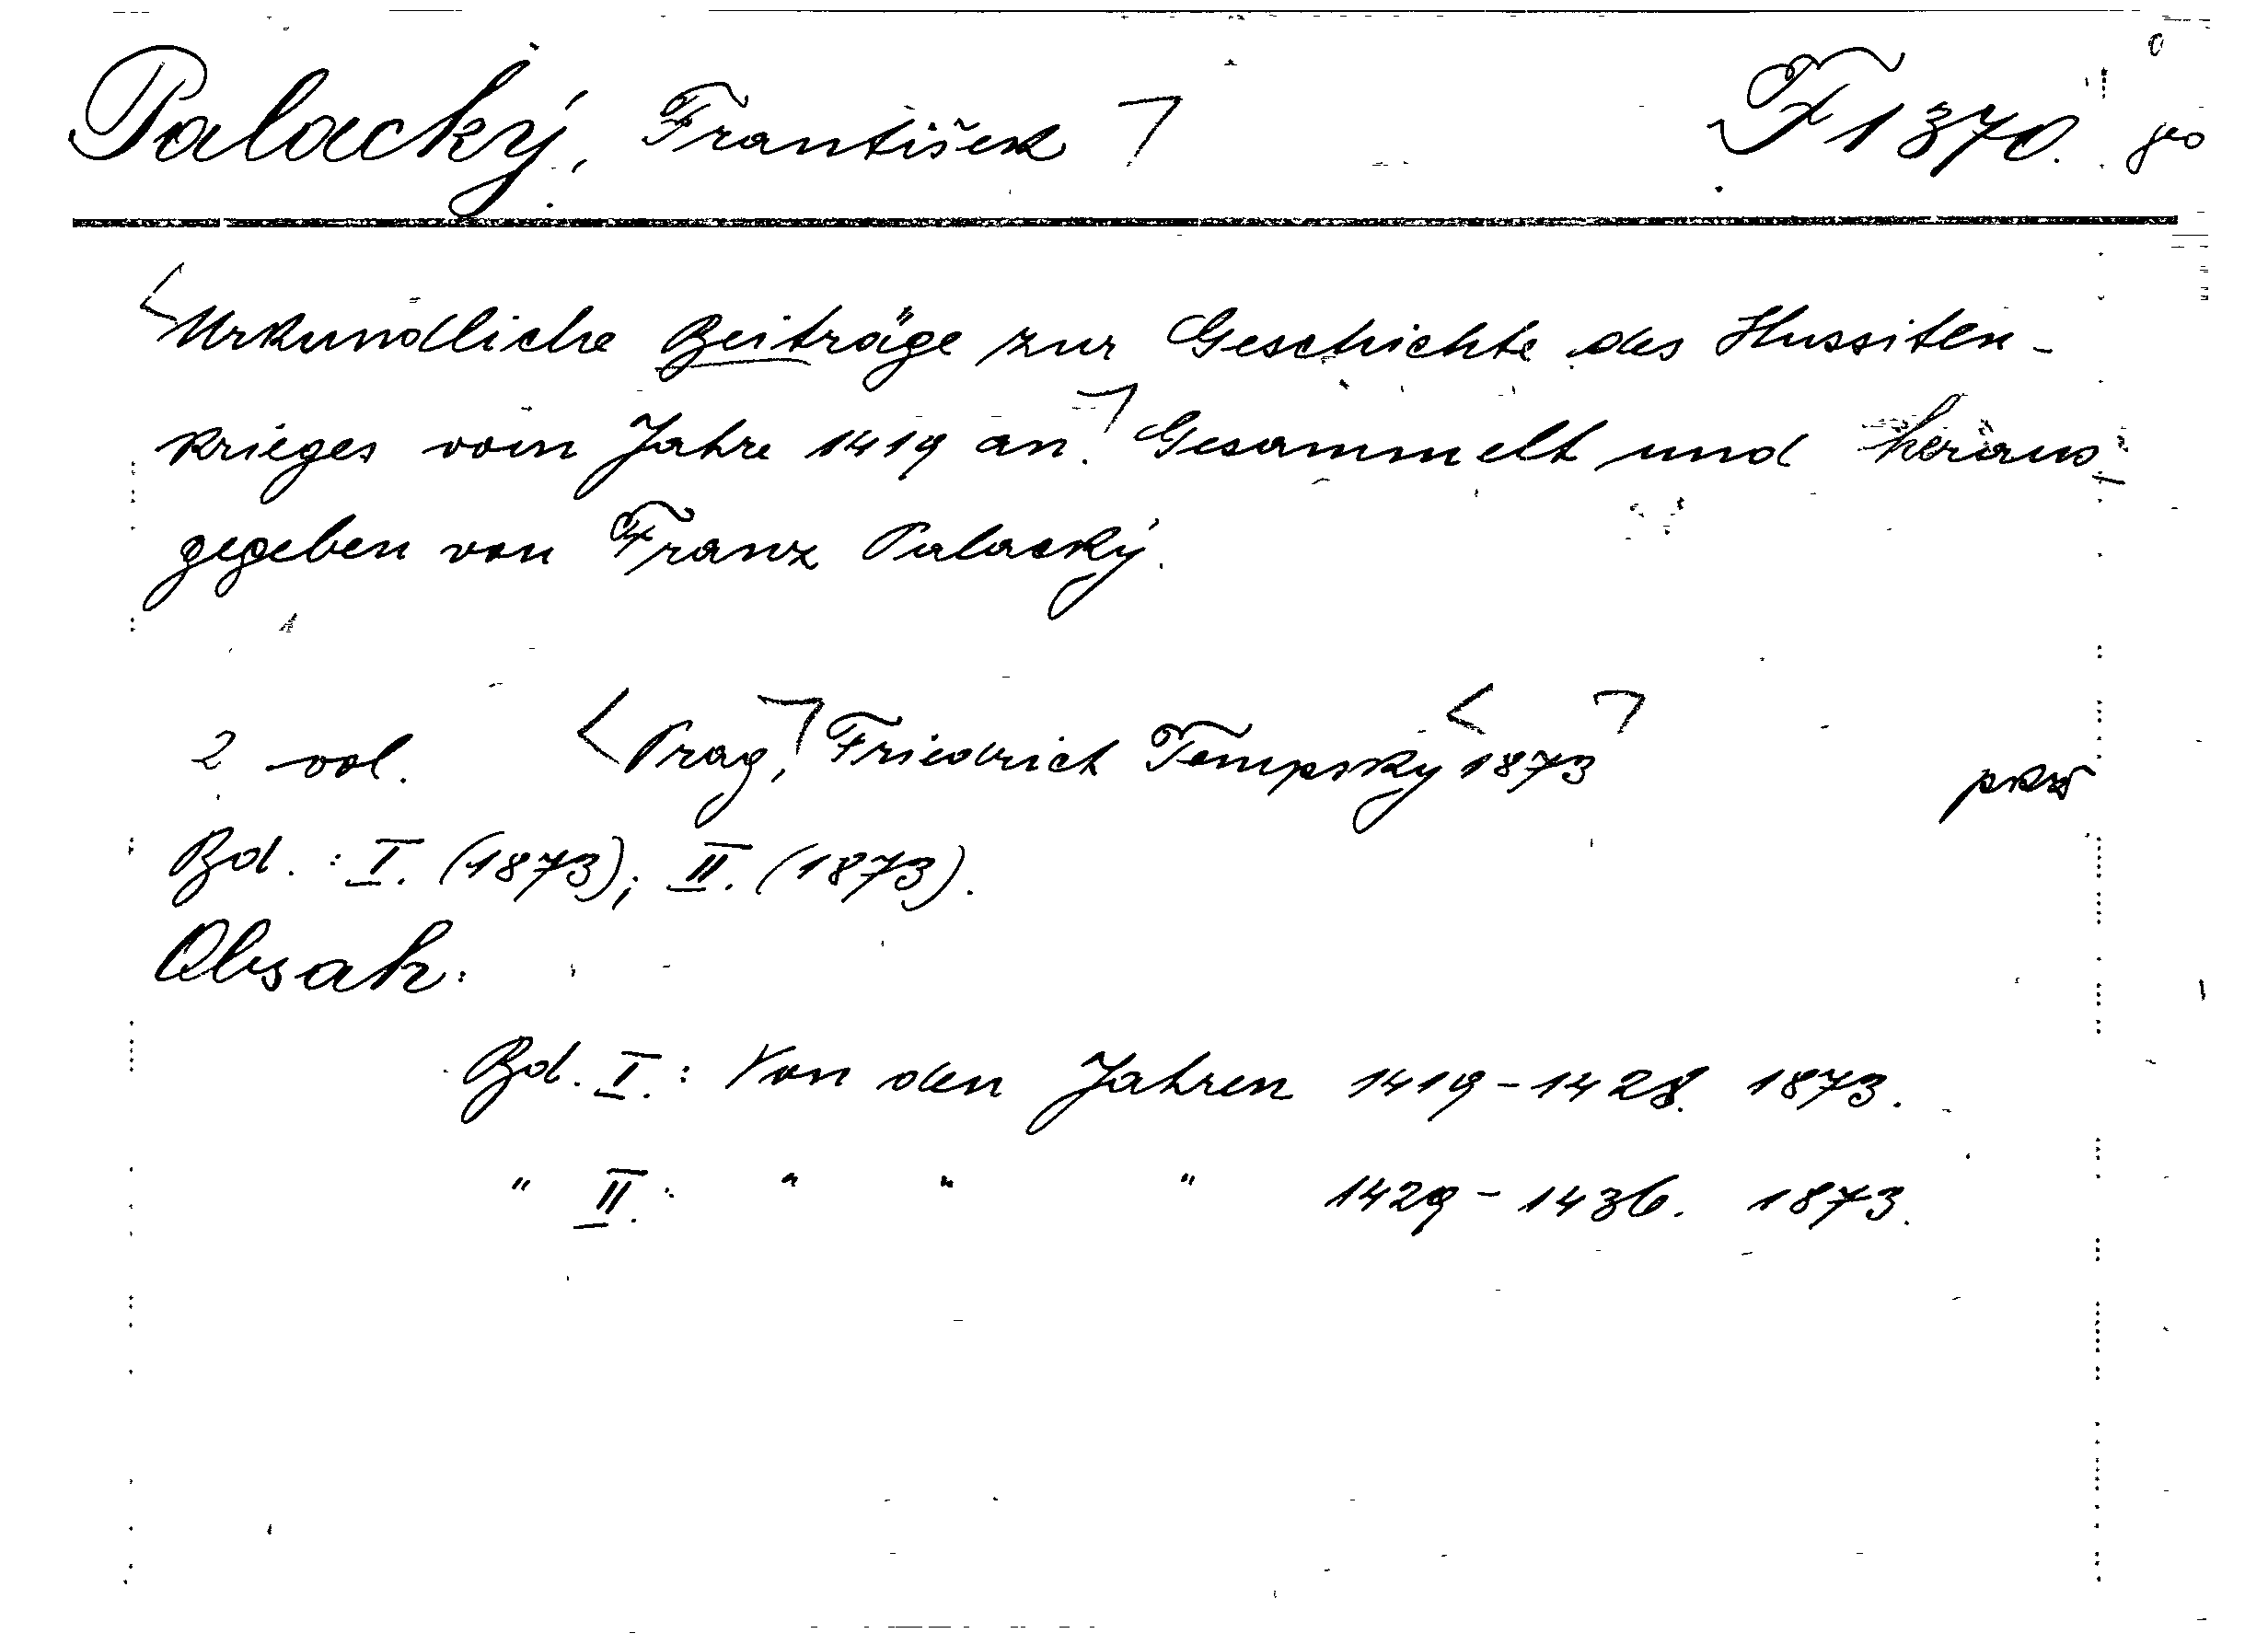 Palacký, František F 1370.
Urkundliche Beiträge zur Geschichte des Hussiten-
krieges vom Jahre 1419 an. Gesammelt und heraus-
gegeben von Franz Palacký.
2 vol. Prag, Friedrich Tempsky 1873
Bd.: I. (1873); II. (1873).
Obsah:
Bd. I.: Von den Jahren 1419-1428. 1873.
" II.: " " " 1429-1436. 1873.